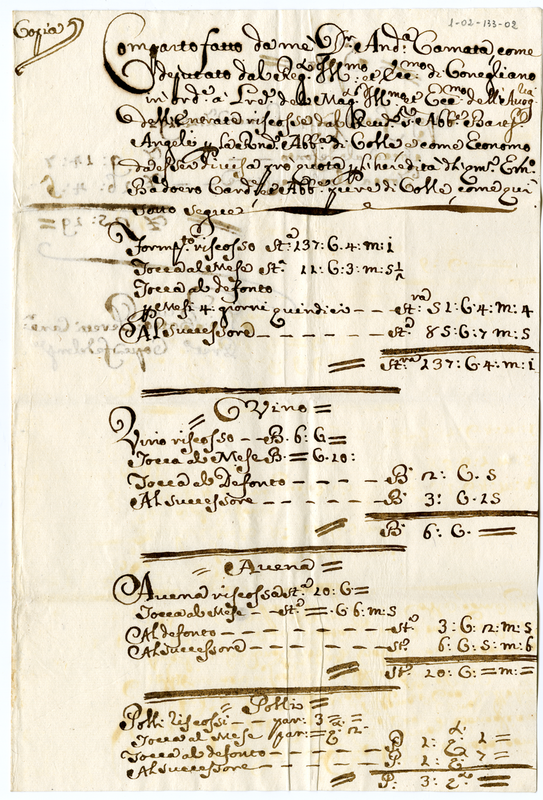 1-02-133-02
Copia
Comparto fatto da me Dr. And.a Camata, come
deputato dal Reg.o Ill.mo et Ecc.mo di Conegliano
in ord.e a Lre del Mag.o Ill.mo et Ecc.mo dell'Avog.ria
dell'Entrate riscosse dal Rev.do Sr. Abb.e
Angeli Abb.a di Colle e come Economo
da esser divisa pro quota
Badoero Card.e Abb.e di Colle, come qui
sotto segue
Form.to riscosso St.a 137: G. 4: m: 1
Tocca al Mese St.a 11: G: 3: m: 5 1/2
Tocca al defonto
Mesi 4: giorni quindici — — St.ra 51: G: 4: m: 4
Al Successore — — — — St.a 85: G: 7: m: 5
St.ra 137: G. 4: m: 1
= Vino =
Vino riscosso — B. 6: G =
Tocca al Mese B = G. 20:
Tocca al Defonto — — — — B. 2: G. 5
Al Successore — — — — B. 3: G. 25
B. 6: G. =
= Avena =
Avena riscossa St.a 20: G =
Tocca al Mese — St.a = G 6: m: 5
Al defonto — — — — St.a 3: G: 2: m: 5
Al Successore — — — — St.a 6: G: 5: m: 6
St.a 20: G: = m: =
= Polli =
Polli riscossi — par: 3 =
Tocca al Mese par: =
Tocca al defonto — — — — P. 1:
Al Successore — — — — P. 1:
P. 3: